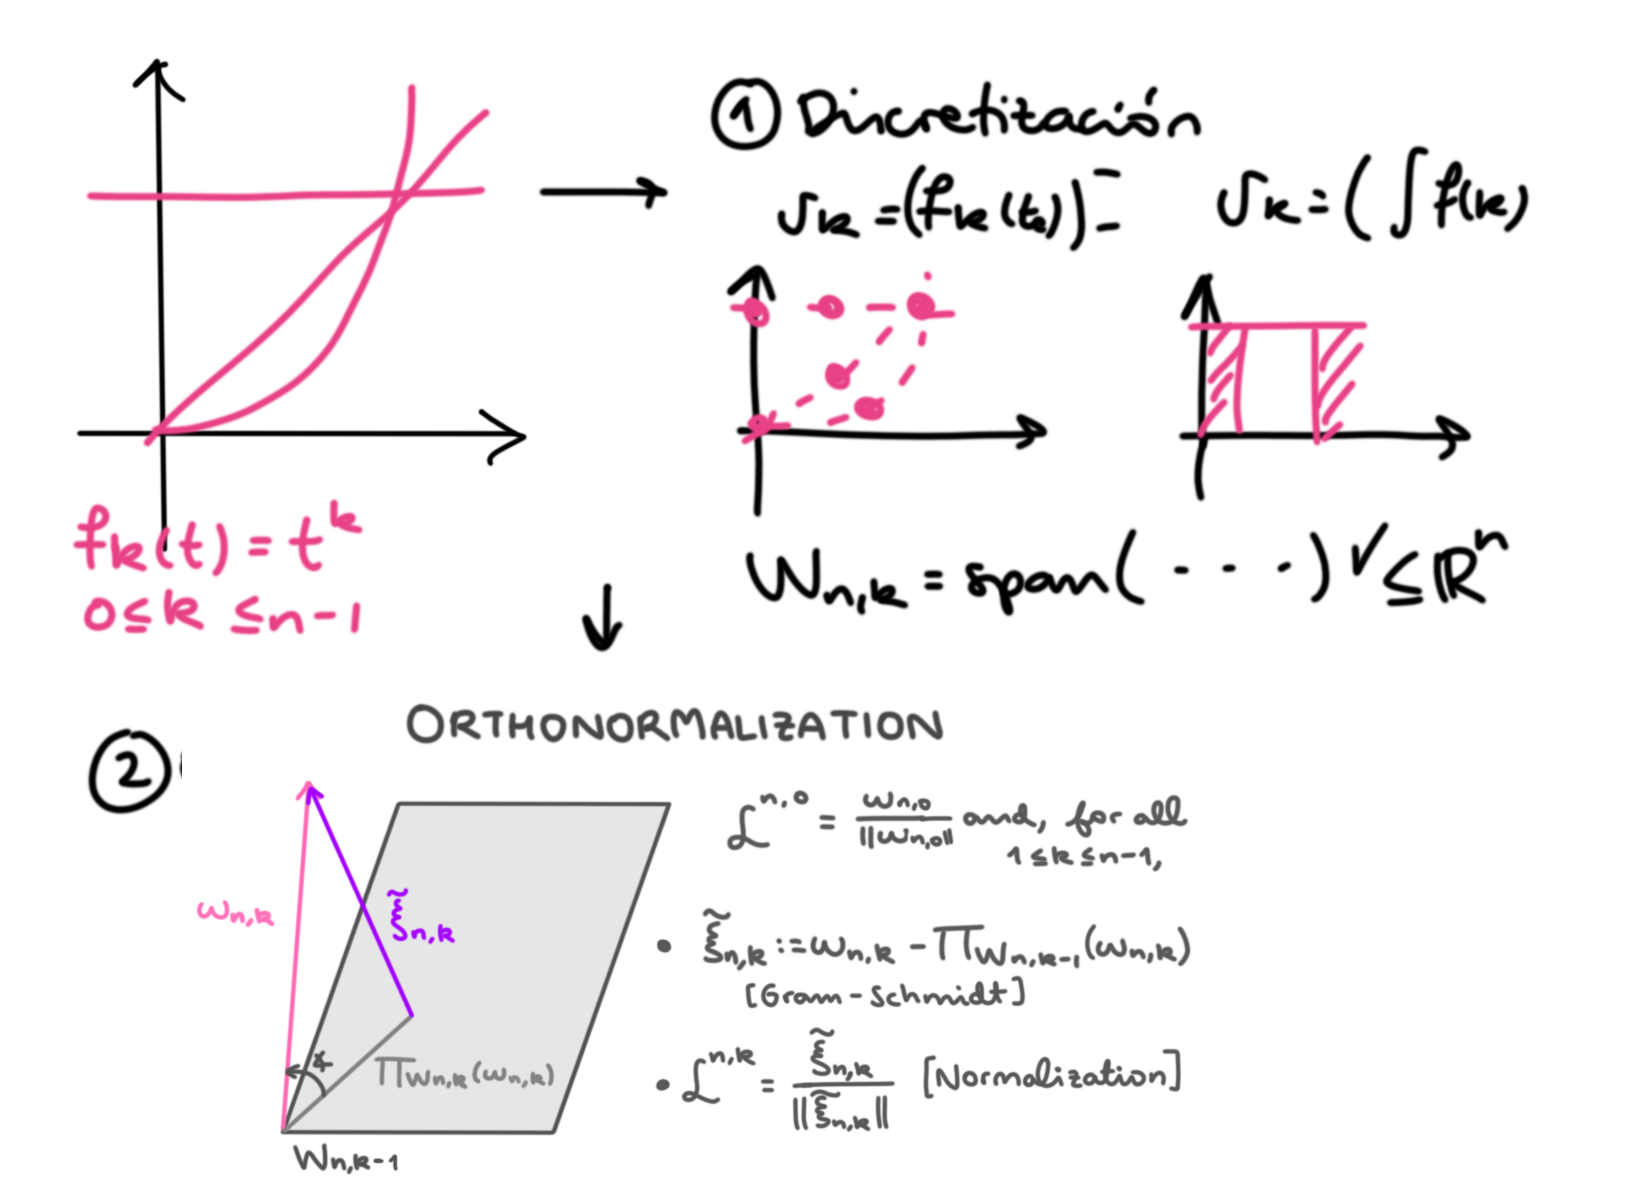 ① Discretización
𝓋k = (fk(tk)) =
𝓋k = ( ∫ f(k)
fk(t) = t^k
0 ≤ k ≤ n-1
Wn,k = span( · · · ) ✓ ≤ ℝ^n
②
ORTHONORMALIZATION
ωn,k
ξ̃n,k
∡
ΠWn,k(ωn,k)
Wn,k-1
ℒ^n,0 = ωn,0 / ||ωn,0|| and, for all
1 ≤ k ≤ n-1,
• ξ̃n,k := ωn,k - ΠWn,k-1(ωn,k)
[Gram-Schmidt]
• ℒ^n,k = ξ̃n,k / ||ξ̃n,k|| [Normalization]